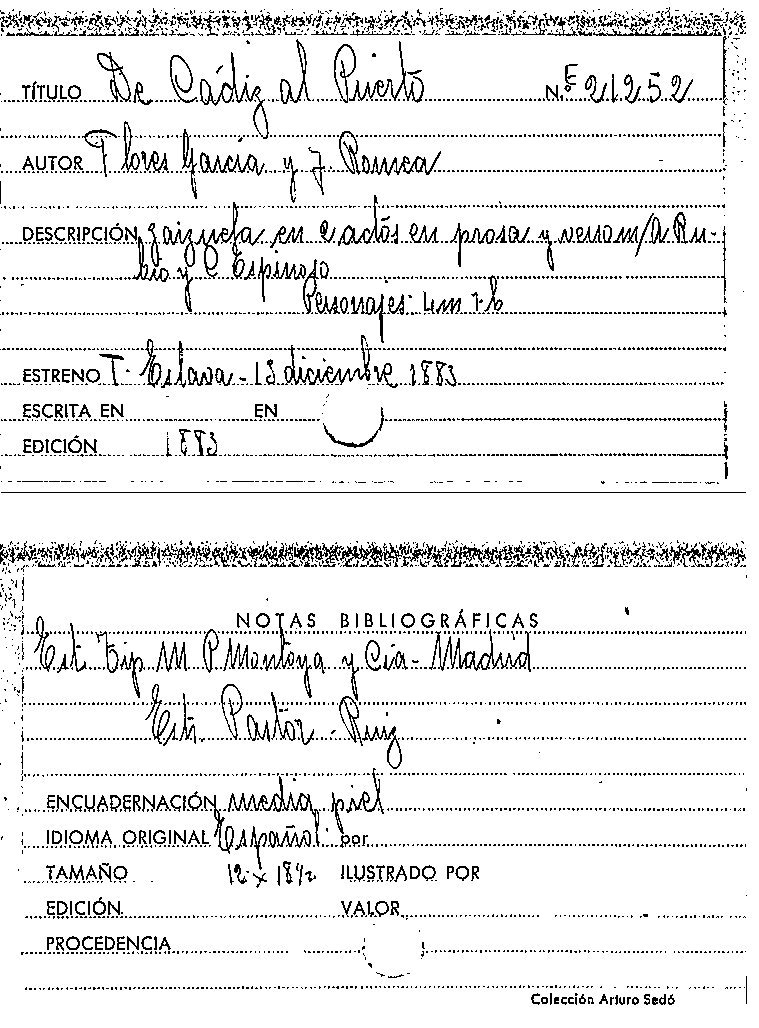 TÍTULO De Cádiz al Puerto N.º E 21252
AUTOR Flores García y J. Romea
DESCRIPCIÓN zarzuela en 2 actos en prosa y verso m/ A Ru-
bio y C Espinosa
Personajes: 4m 7h
ESTRENO T. Eslava - 13 diciembre 1883
ESCRITA EN EN
EDICIÓN 1883
NOTAS BIBLIOGRÁFICAS
Est. Tip M P Montoya y Cía - Madrid
Est. Pastor - Ruiz
ENCUADERNACIÓN media piel
IDIOMA ORIGINAL Español por
TAMAÑO 12 x 18½ ILUSTRADO POR
EDICIÓN VALOR
PROCEDENCIA
Colección Arturo Sedó